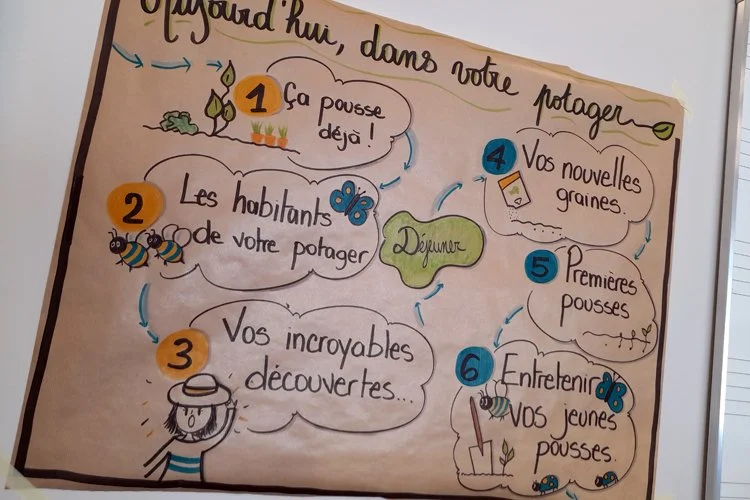 Aujourd'hui, dans votre potager
1
Ça pousse
déjà !
2
Les habitants
de votre potager
3
Vos incroyables
découvertes...
Déjeuner
4
Vos nouvelles
graines.
5
Premières
pousses
6
Entretenir
vos jeunes
pousses.